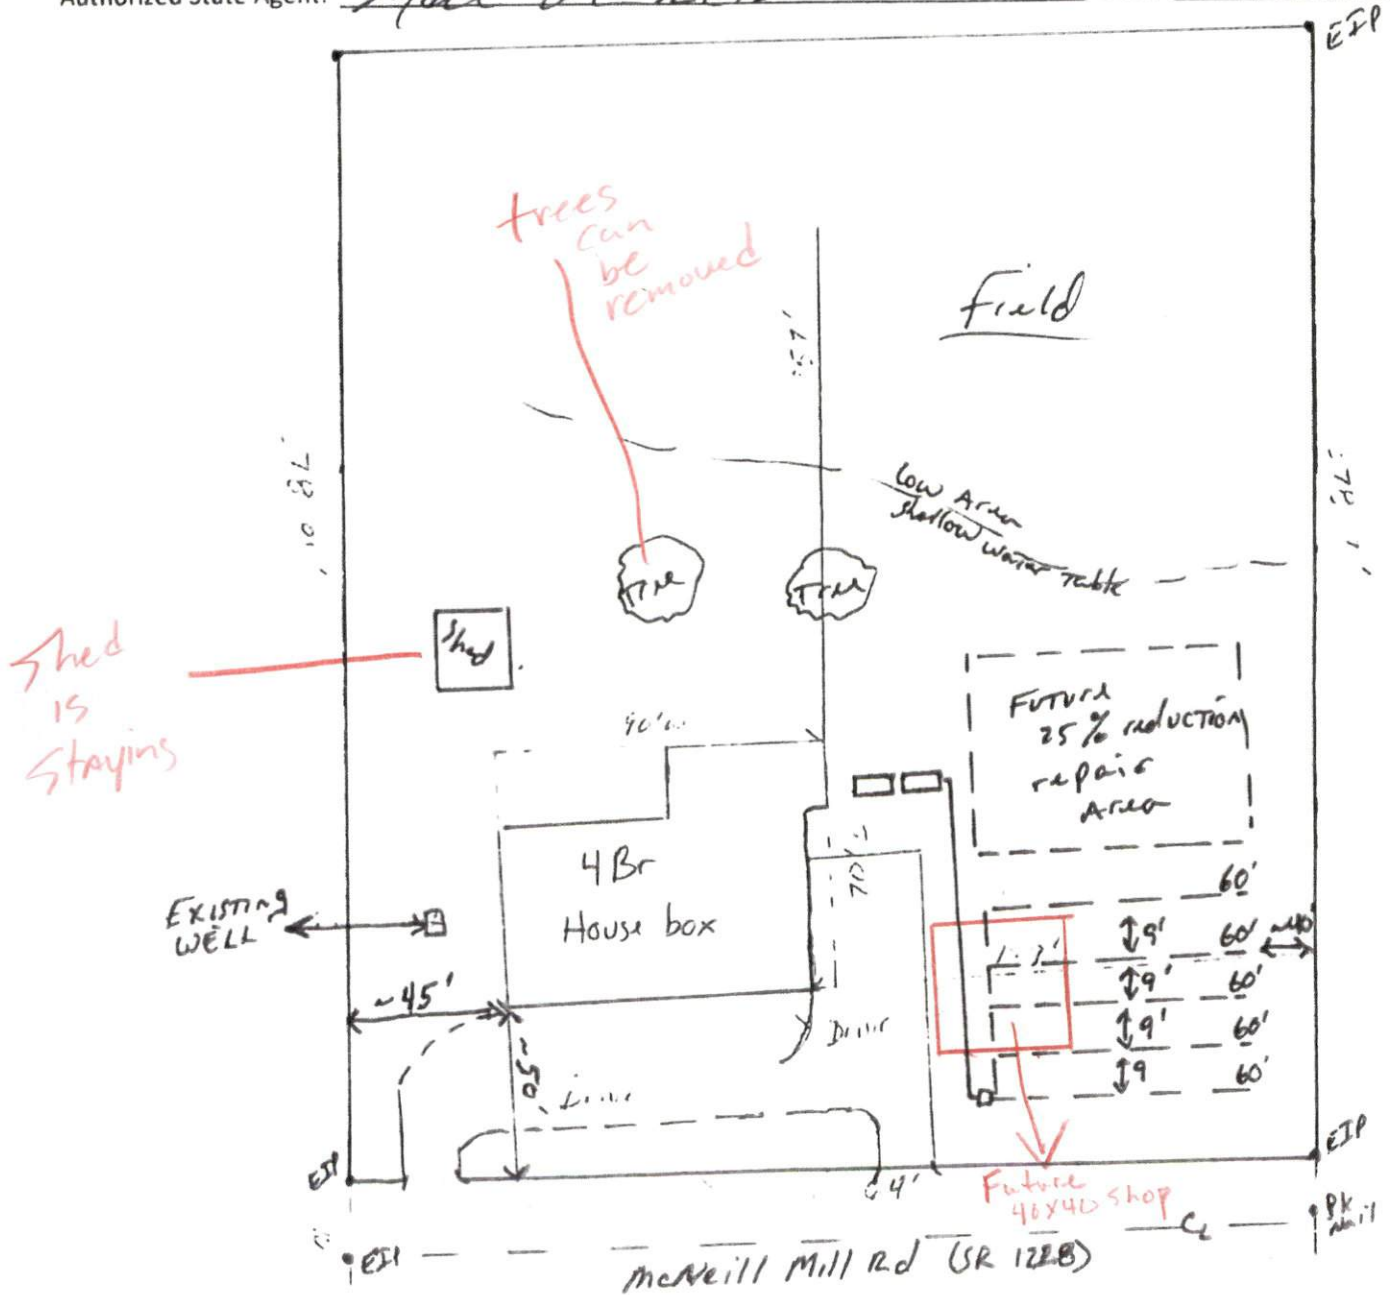 Authorized State Agent:
EIP
trees
can
be
removed
Field
157'
Low Area
Shallow water Table
Tree
Tree
Shed
Shed
is
Staying
90'
Future
25% reduction
repair
Area
4Br
House box
70'
EXISTING
WELL
60'
9'
60'
~40'
9'
60'
9'
60'
9
60'
~45'
Drive
~50'
EIP
EIP
64'
Future
40x40 shop
PK
Nail
CL
EIP
McNeill Mill Rd (SR 1228)